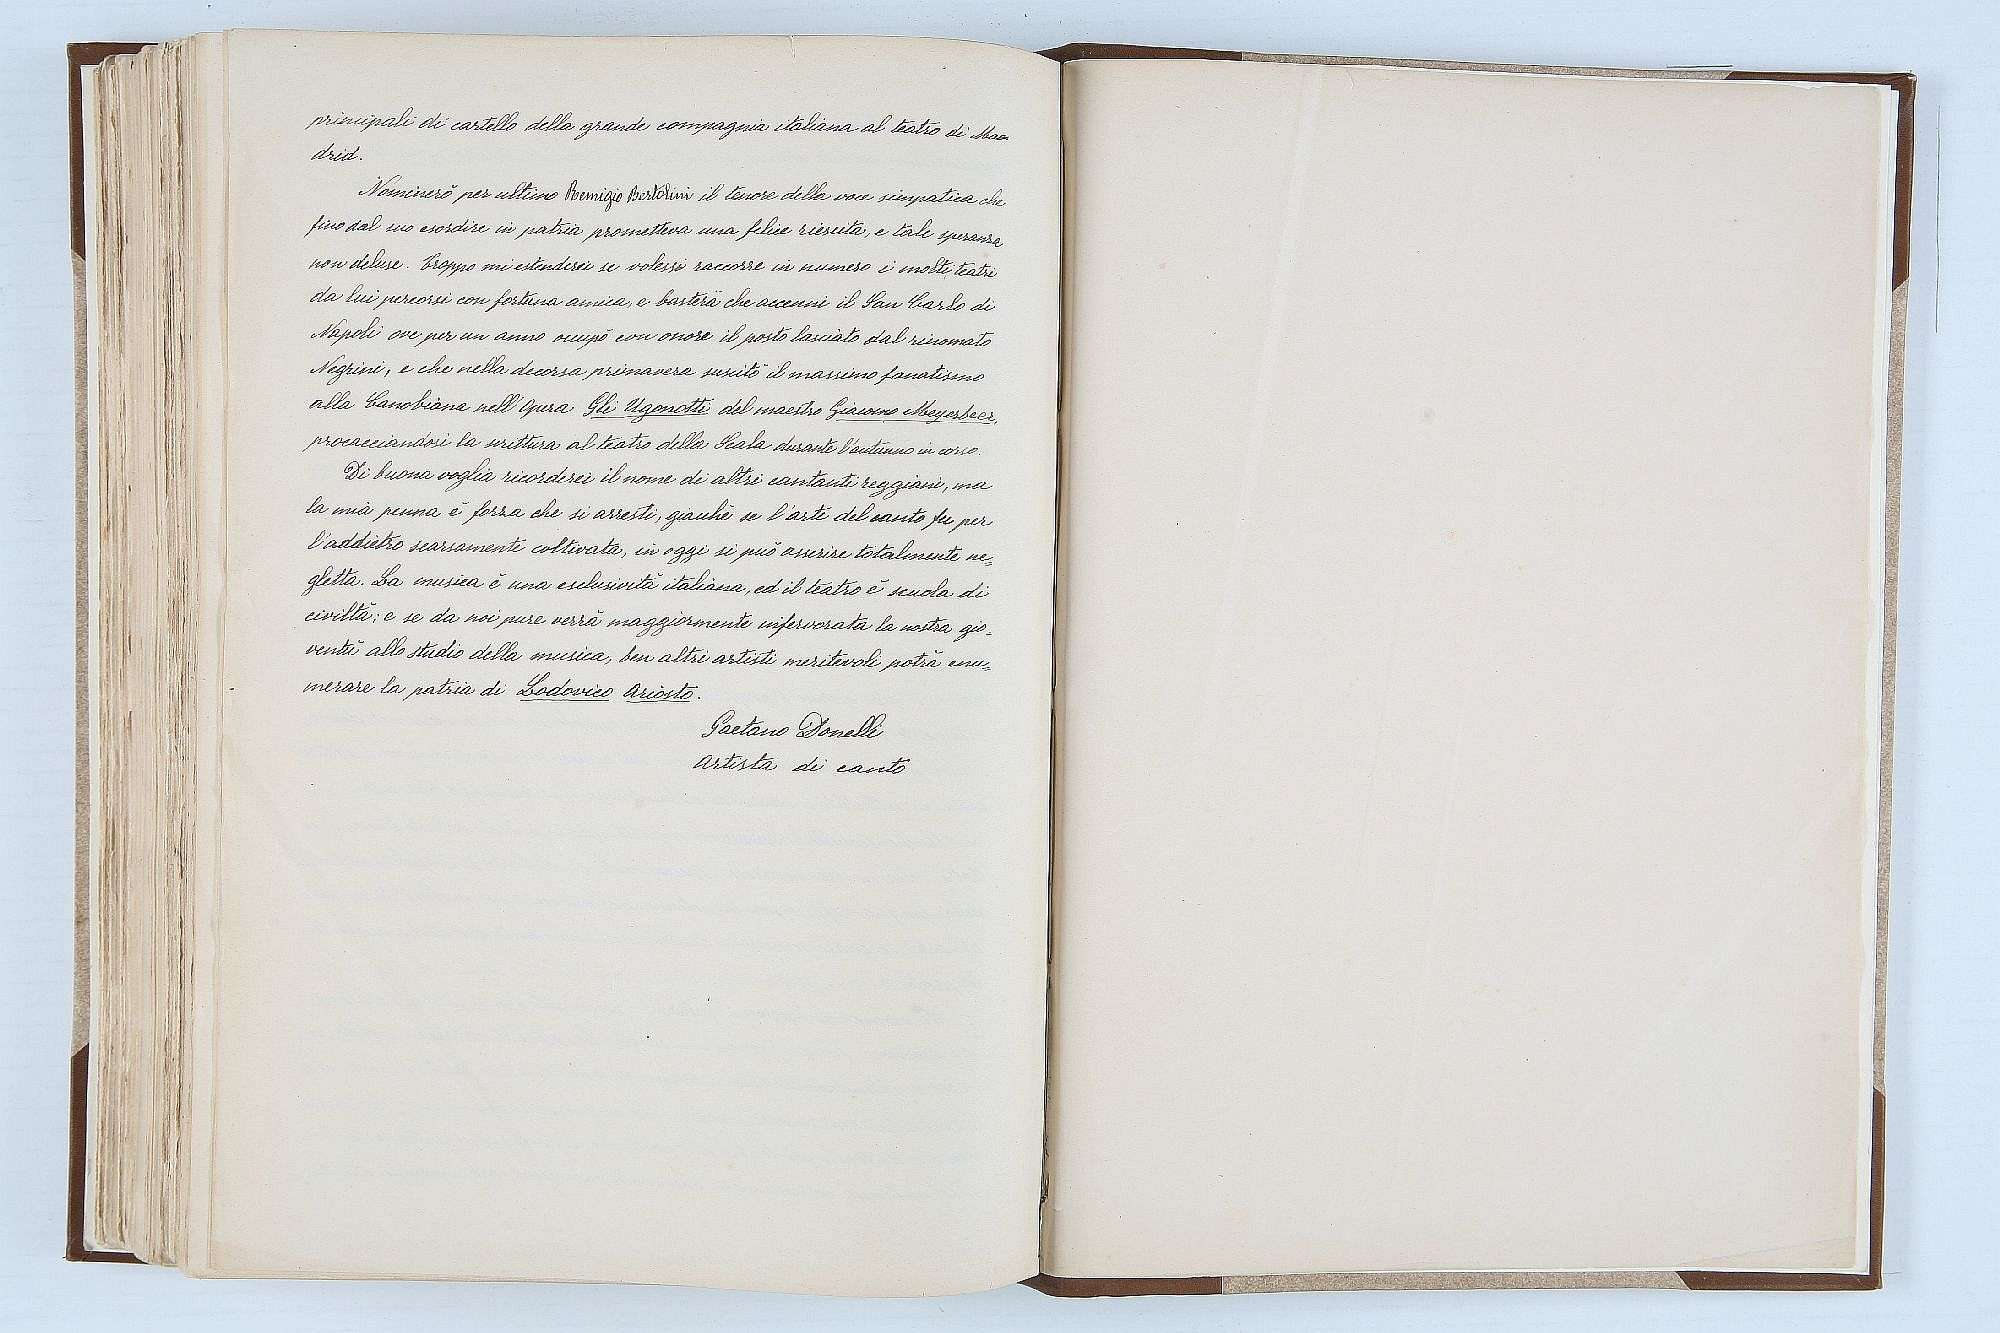 principali di cartello della grande compagnia italiana al teatro di Ma=
drid.
Nominerò per ultimo Remigio Bertolini il tenore della voce simpatica che
fino dal suo esordire in patria prometteva una felice riescita, e tale speranza
non deluse. Troppo mi estenderei se volessi raccorre in numero i molti teatri
da lui percorsi con fortuna amica, e basterà che accenni il San Carlo di
Napoli ove per un anno occupò con onore il posto lasciato dal rinomato
Negrini, e che nella decorsa primavera suscitò il massimo fanatismo
alla Canobiana nell'Opera Gli Ugonotti del maestro Giacomo Meyerbeer,
procacciandosi la scrittura al teatro della Scala durante l'autunno in corso.
Di buona voglia ricorderei il nome di altri cantanti reggiani, ma
la mia penna è forza che si arresti, giacchè se l'arte del canto fu per
l'addietro scarsamente coltivata, in oggi si può asserire totalmente ne=
gletta. La musica è una esclusività italiana, ed il teatro è scuola di
civiltà; e se da noi pure verrà maggiormente infervorata la nostra gio=
ventù allo studio della musica, ben altri artisti meritevoli potrà enu=
merare la patria di Lodovico Ariosto.
Gaetano Donelli
Artista di canto